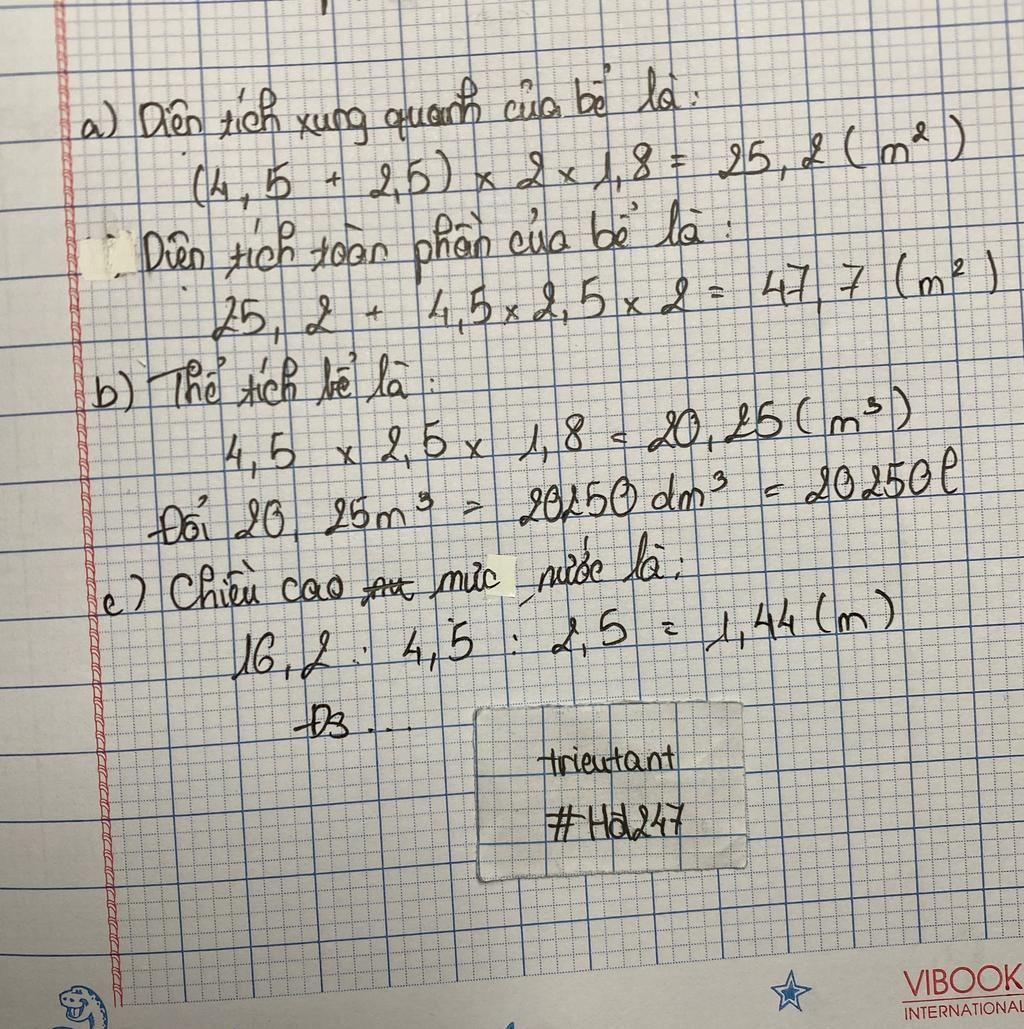 a) Diện tích xung quanh của bể là:
(4,5 + 2,5) x 2 x 1,8 = 25,2 (m²)
Diện tích toàn phần của bể là:
25,2 + 4,5 x 2,5 x 2 = 47,7 (m²)
b) Thể tích bể là:
4,5 x 2,5 x 1,8 = 20,25 (m³)
Đổi 20,25m³ = 20250 dm³ = 20250l
c) Chiều cao mức nước là:
16,2 : 4,5 : 2,5 = 1,44 (m)
Đs ....
trieutant
#Hd247
VIBOOK
INTERNATIONAL